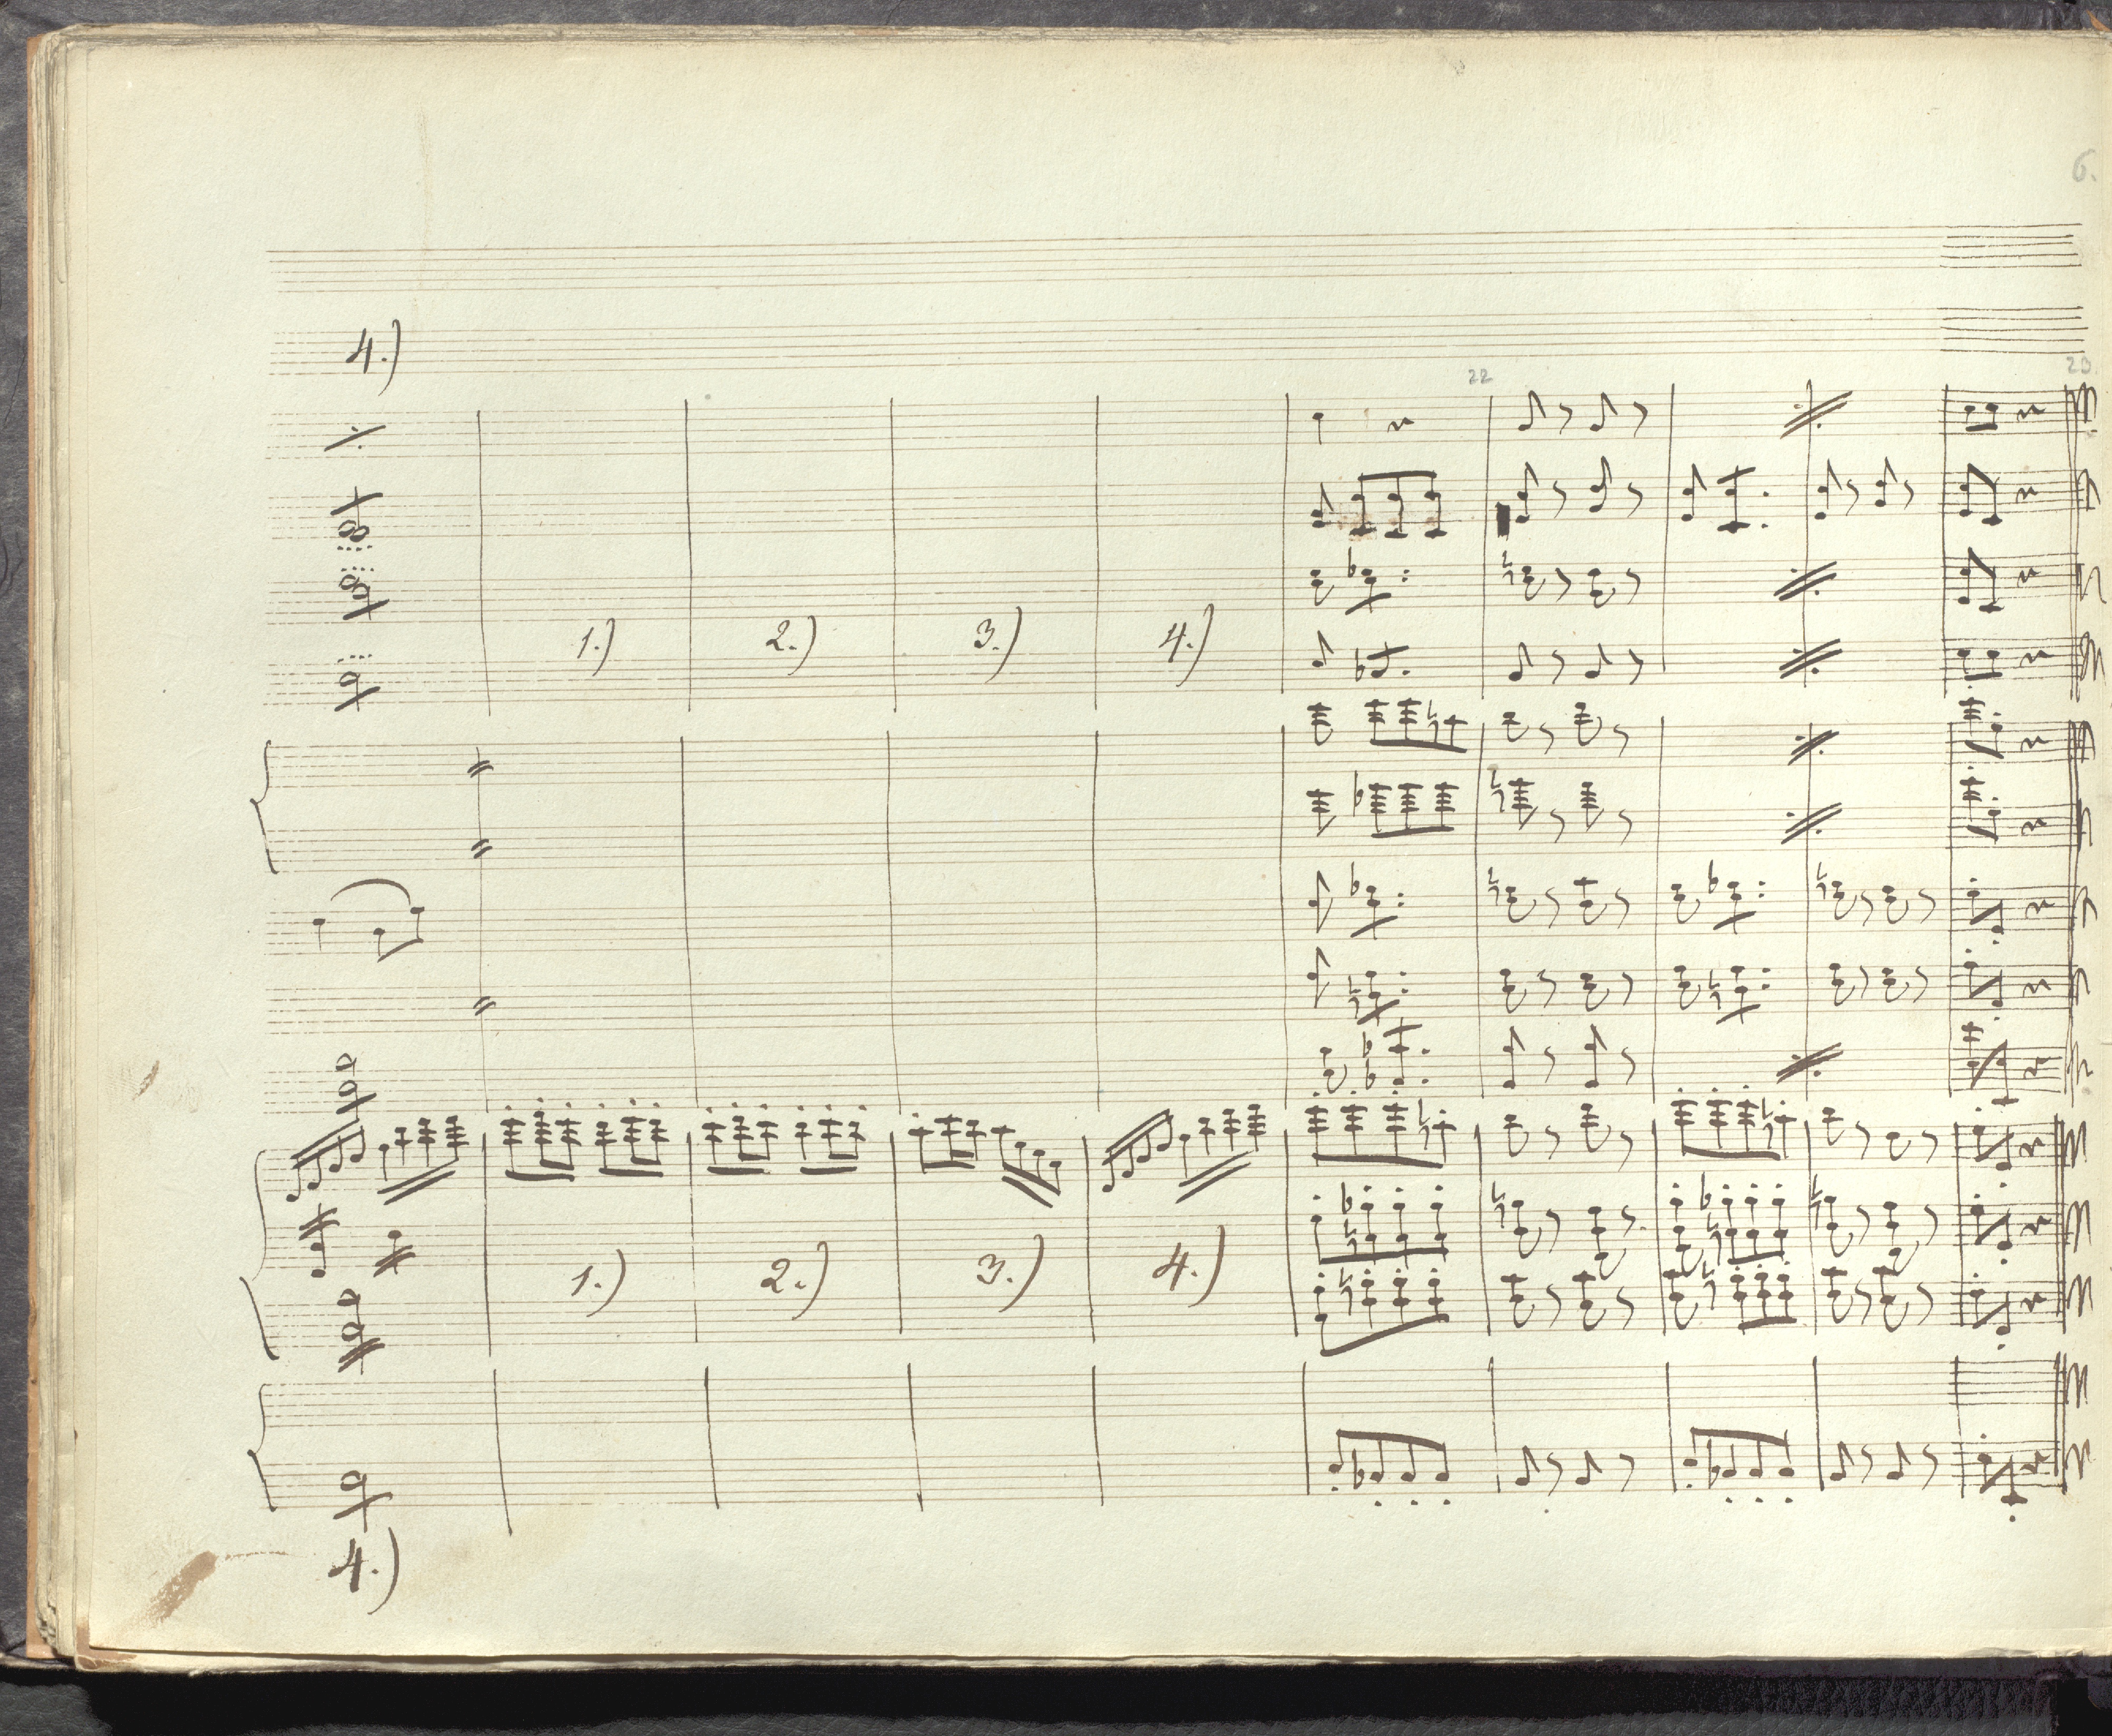 6.
4.)
22
23.
1.) 2.) 3.) 4.)
1.) 2.) 3.) 4.)
4.)